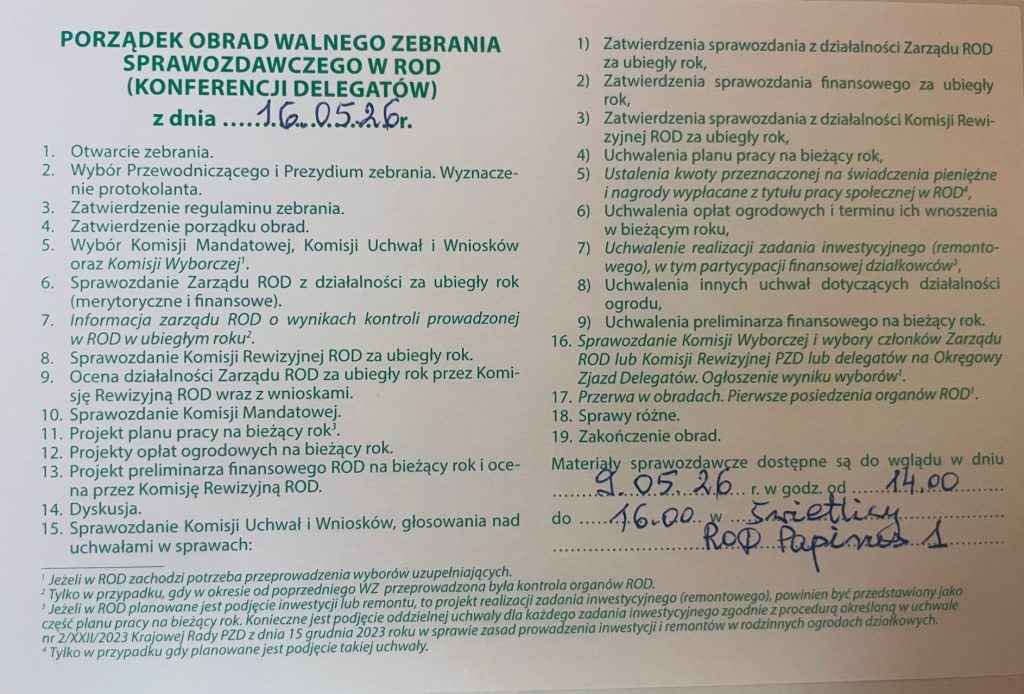 PORZĄDEK OBRAD WALNEGO ZEBRANIA
SPRAWOZDAWCZEGO W ROD
(KONFERENCJI DELEGATÓW)
z dnia .....16.05.26r.
1. Otwarcie zebrania.
2. Wybór Przewodniczącego i Prezydium zebrania. Wyznacze-
nie protokolanta.
3. Zatwierdzenie regulaminu zebrania.
4. Zatwierdzenie porządku obrad.
5. Wybór Komisji Mandatowej, Komisji Uchwał i Wniosków
oraz Komisji Wyborczej¹.
6. Sprawozdanie Zarządu ROD z działalności za ubiegły rok
(merytoryczne i finansowe).
7. Informacja zarządu ROD o wynikach kontroli prowadzonej
w ROD w ubiegłym roku².
8. Sprawozdanie Komisji Rewizyjnej ROD za ubiegły rok.
9. Ocena działalności Zarządu ROD za ubiegły rok przez Komi-
sję Rewizyjną ROD wraz z wnioskami.
10. Sprawozdanie Komisji Mandatowej.
11. Projekt planu pracy na bieżący rok³.
12. Projekty opłat ogrodowych na bieżący rok.
13. Projekt preliminarza finansowego ROD na bieżący rok i oce-
na przez Komisję Rewizyjną ROD.
14. Dyskusja.
15. Sprawozdanie Komisji Uchwał i Wniosków, głosowania nad
uchwałami w sprawach:
1) Zatwierdzenia sprawozdania z działalności Zarządu ROD
za ubiegły rok,
2) Zatwierdzenia sprawozdania finansowego za ubiegły
rok,
3) Zatwierdzenia sprawozdania z działalności Komisji Rewi-
zyjnej ROD za ubiegły rok,
4) Uchwalenia planu pracy na bieżący rok,
5) Ustalenia kwoty przeznaczonej na świadczenia pieniężne
i nagrody wypłacane z tytułu pracy społecznej w ROD⁴,
6) Uchwalenia opłat ogrodowych i terminu ich wnoszenia
w bieżącym roku,
7) Uchwalenie realizacji zadania inwestycyjnego (remonto-
wego), w tym partycypacji finansowej działkowców³,
8) Uchwalenia innych uchwał dotyczących działalności
ogrodu,
9) Uchwalenia preliminarza finansowego na bieżący rok.
16. Sprawozdanie Komisji Wyborczej i wybory członków Zarządu
ROD lub Komisji Rewizyjnej PZD lub delegatów na Okręgowy
Zjazd Delegatów. Ogłoszenie wyniku wyborów¹.
17. Przerwa w obradach. Pierwsze posiedzenia organów ROD¹.
18. Sprawy różne.
19. Zakończenie obrad.
Materiały sprawozdawcze dostępne są do wglądu w dniu
......9.05.26... r. w godz. od ....14.00......
do ....16.00.. w ...Świetlicy
ROD Papirus 1
¹ Jeżeli w ROD zachodzi potrzeba przeprowadzenia wyborów uzupełniających.
² Tylko w przypadku, gdy w okresie od poprzedniego WZ przeprowadzona była kontrola organów ROD.
³ Jeżeli w ROD planowane jest podjęcie inwestycji lub remontu, to projekt realizacji zadania inwestycyjnego (remontowego), powinien być przedstawiony jako
część planu pracy na bieżący rok. Konieczne jest podjęcie oddzielnej uchwały dla każdego zadania inwestycyjnego zgodnie z procedurą określoną w uchwale
nr 2/XXII/2023 Krajowej Rady PZD z dnia 15 grudnia 2023 roku w sprawie zasad prowadzenia inwestycji i remontów w rodzinnych ogrodach działkowych.
⁴ Tylko w przypadku gdy planowane jest podjęcie takiej uchwały.